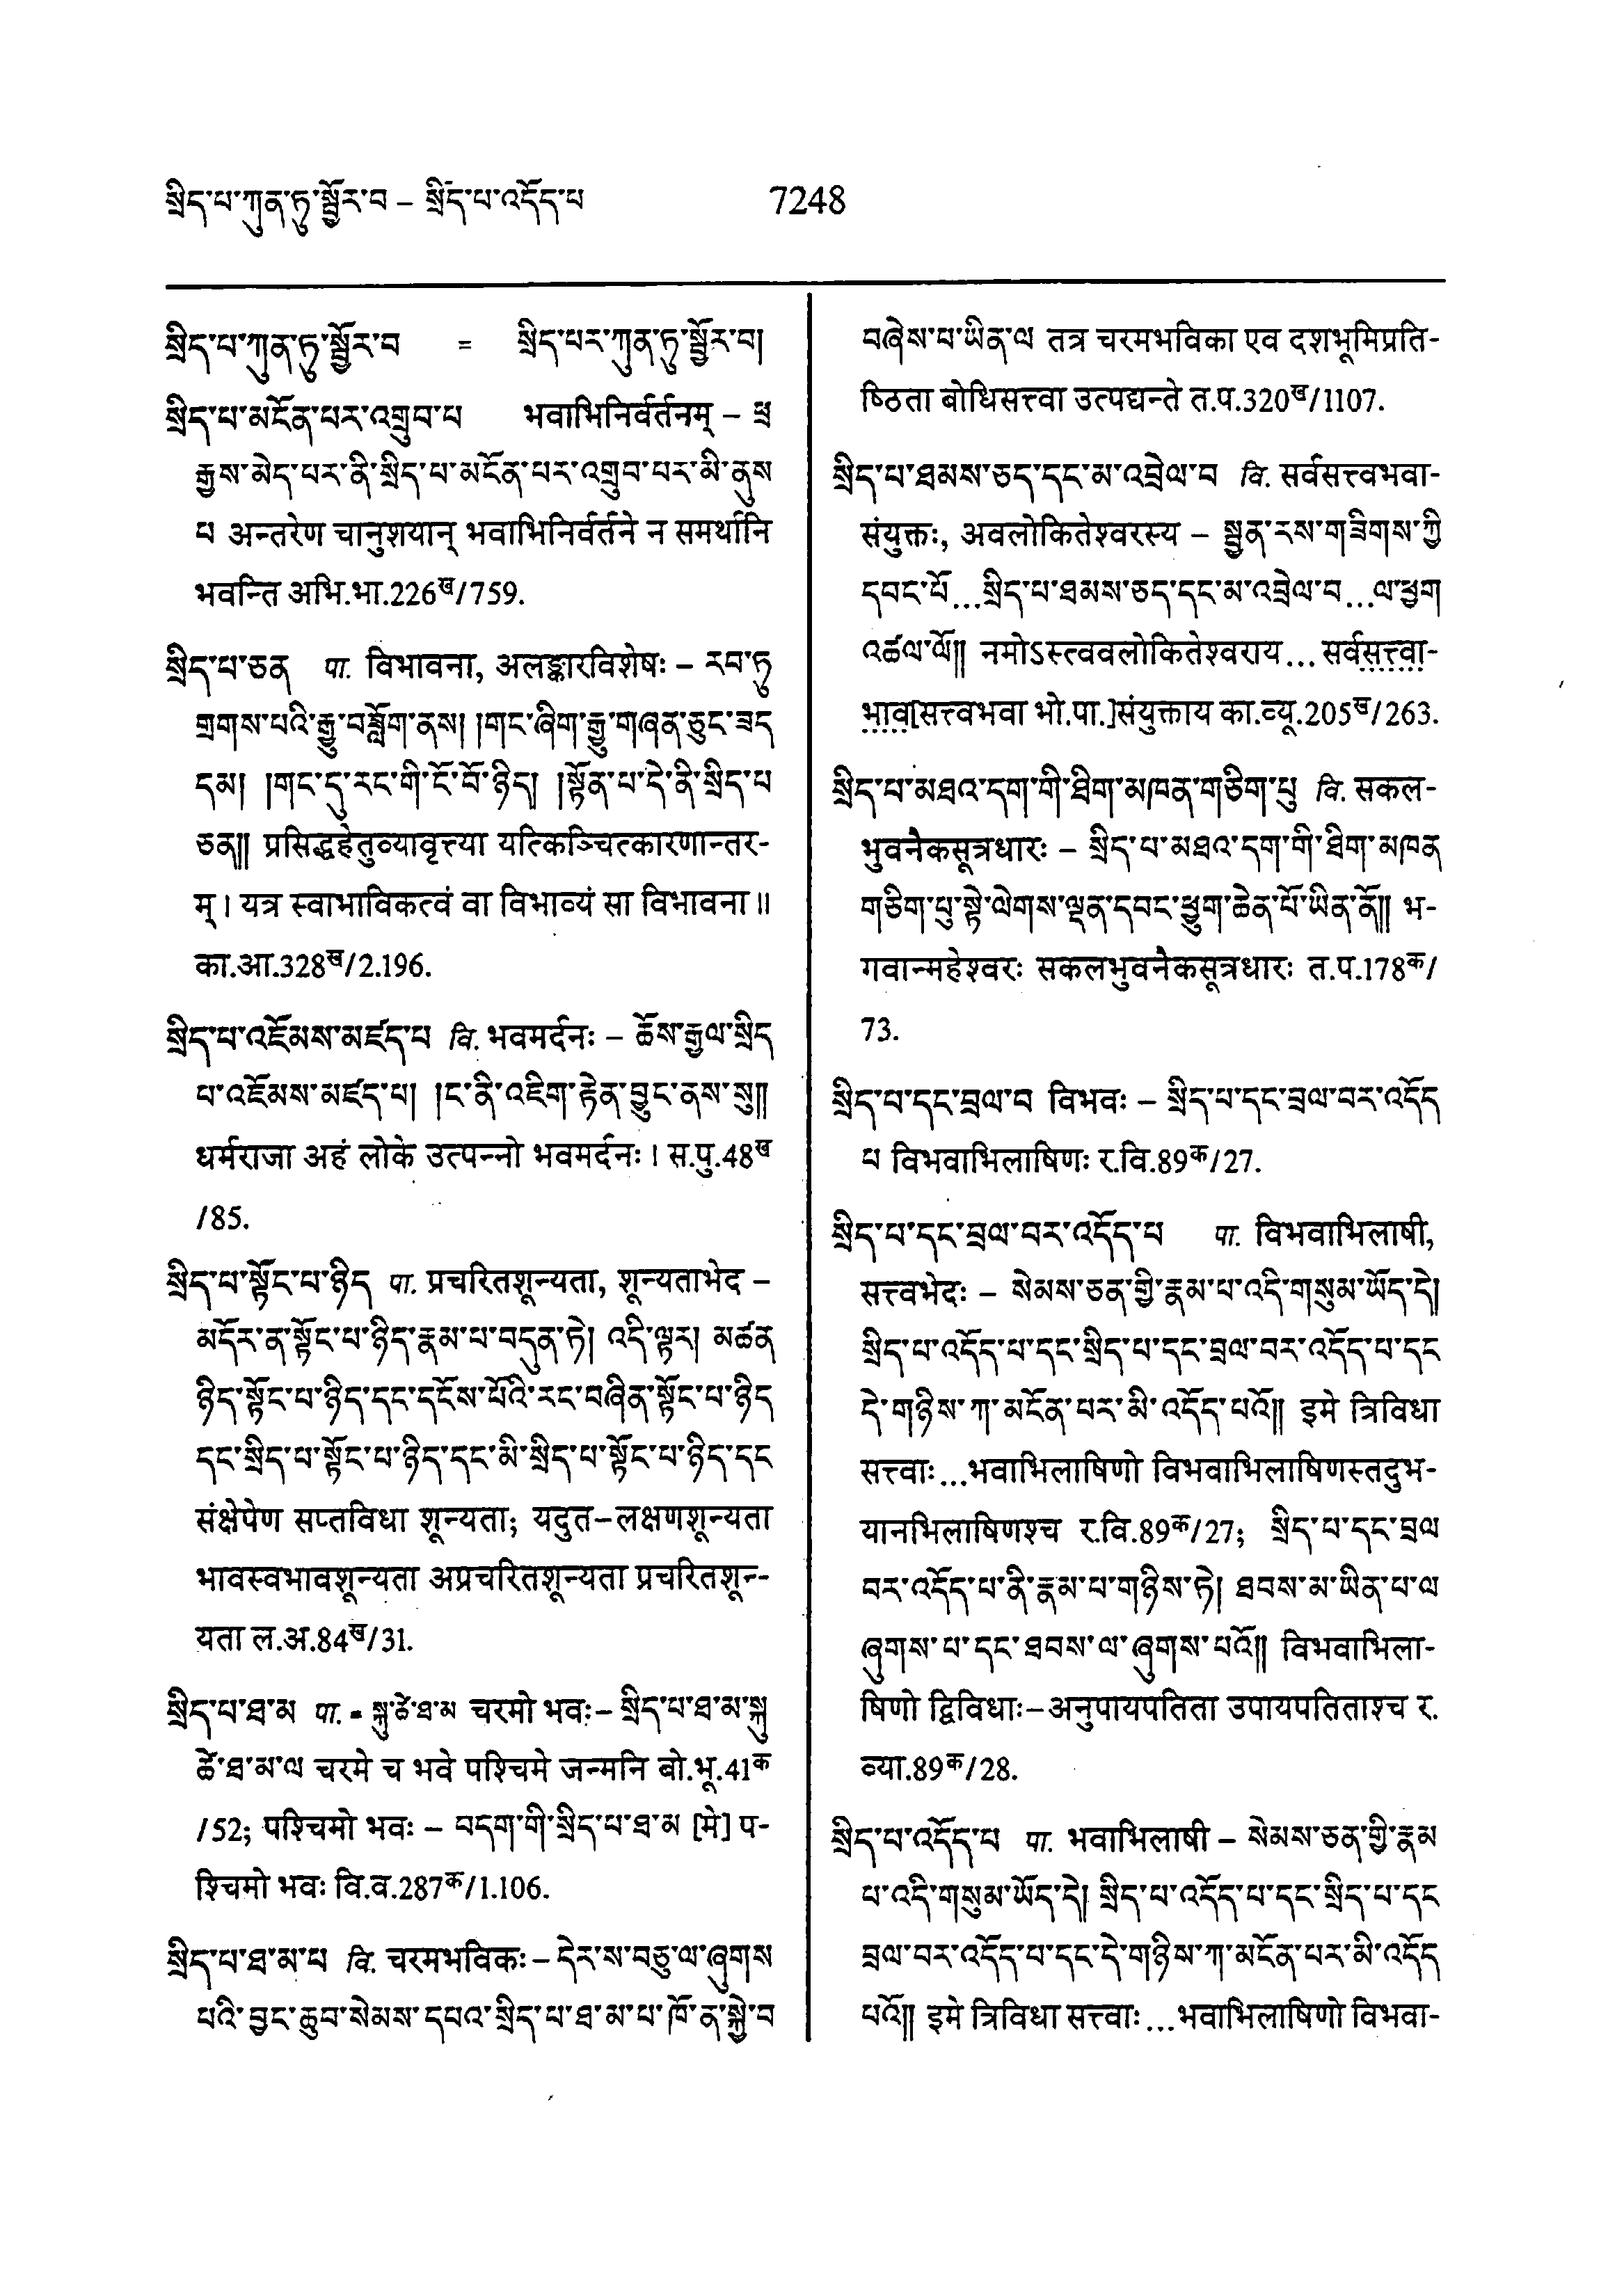 སྲིད་པ་ཀུན་ཏུ་སྦྱོར་བ – སྲིད་པ་འདོད་པ 7248
སྲིད་པ་ཀུན་ཏུ་སྦྱོར་བ = སྲིད་པར་ཀུན་ཏུ་སྦྱོར་བ།
སྲིད་པ་མངོན་པར་འགྲུབ་པ भवाभिनिर्वर्तनम् – ཕྲ
རྒྱས་མེད་པར་ནི་སྲིད་པ་མངོན་པར་འགྲུབ་པར་མི་ནུས
པ अन्तरेण चानुशयान् भवाभिनिर्वर्तने न समर्थानि
भवन्ति अभि.भा.226ख/759.
སྲིད་པ་ཅན पा. विभावना, अलङ्कारविशेषः – རབ་ཏུ
གྲགས་པའི་རྒྱུ་བཟློག་ནས། །གང་ཞིག་རྒྱུ་གཞན་ཅུང་ཟད
དམ། །གང་དུ་རང་གི་ངོ་བོ་ཉིད། །སྟོན་པ་དེ་ནི་སྲིད་པ
ཅན།། प्रसिद्धहेतुव्यावृत्त्या यत्किञ्चित्कारणान्तर-
म्। यत्र स्वाभाविकत्वं वा विभाव्यं सा विभावना॥
का.आ.328ख/2.196.
སྲིད་པ་འཇོམས་མཛད་པ वि. भवमर्दनः – ཆོས་རྒྱལ་སྲིད
པ་འཇོམས་མཛད་པ། །ང་ནི་འཇིག་རྟེན་བྱུང་ནས་སུ།།
धर्मराजा अहं लोके उत्पन्नो भवमर्दनः। स.पु.48ख
/85.
སྲིད་པ་སྟོང་པ་ཉིད पा. प्रचरितशून्यता, शून्यताभेद –
མདོར་ན་སྟོང་པ་ཉིད་རྣམ་པ་བདུན་ཏེ། འདི་ལྟར། མཚན
ཉིད་སྟོང་པ་ཉིད་དང་དངོས་པོའི་རང་བཞིན་སྟོང་པ་ཉིད
དང་སྲིད་པ་སྟོང་པ་ཉིད་དང་མི་སྲིད་པ་སྟོང་པ་ཉིད་དང
संक्षेपेण सप्तविधा शून्यता; यदुत–लक्षणशून्यता
भावस्वभावशून्यता अप्रचरितशून्यता प्रचरितशून्-
यता ल.अ.84ख/31.
སྲིད་པ་ཐ་མ पा. = སྐུ་ཚེ་ཐ་མ चरमो भवः– སྲིད་པ་ཐ་མ་སྐུ
ཚེ་ཐ་མ་ལ चरमे च भवे पश्चिमे जन्मनि बो.भू.41क
/52; पश्चिमो भवः – བདག་གི་སྲིད་པ་ཐ་མ [मे] प-
श्चिमो भवः वि.व.287क/1.106.
སྲིད་པ་ཐ་མ་པ वि. चरमभविकः– དེར་ས་བཅུ་ལ་ཞུགས
པའི་བྱང་ཆུབ་སེམས་དཔའ་སྲིད་པ་ཐ་མ་པ་ཁོ་ན་སྐྱེ་བ
བཞེས་པ་ཡིན་ལ तत्र चरमभविका एव दशभूमिप्रति-
ष्ठिता बोधिसत्त्वा उत्पद्यन्ते त.प.320ख/1107.
སྲིད་པ་ཐམས་ཅད་དང་མ་འབྲེལ་བ वि. सर्वसत्त्वभवा-
संयुक्तः, अवलोकितेश्वरस्य – སྤྱན་རས་གཟིགས་ཀྱི
དབང་པོ...སྲིད་པ་ཐམས་ཅད་དང་མ་འབྲེལ་བ...ལ་ཕྱག
འཚལ་ལོ།། नमोऽस्त्ववलोकितेश्वराय... सर्वसत्त्वा-
भाव[सत्त्वभवा भो.पा.]संयुक्ताय का.व्यू.205ख/263.
སྲིད་པ་མཐའ་དག་གི་ཐིག་མཁན་གཅིག་པུ वि. सकल-
भुवनैकसूत्रधारः – སྲིད་པ་མཐའ་དག་གི་ཐིག་མཁན
གཅིག་པུ་སྟེ་ལེགས་ལྡན་དབང་ཕྱུག་ཆེན་པོ་ཡིན་ནོ།། भ-
गवान्महेश्वरः सकलभुवनैकसूत्रधारः त.प.178क/
73.
སྲིད་པ་དང་བྲལ་བ विभवः – སྲིད་པ་དང་བྲལ་བར་འདོད
པ विभवाभिलाषिणः र.वि.89क/27.
སྲིད་པ་དང་བྲལ་བར་འདོད་པ पा. विभवाभिलाषी,
सत्त्वभेदः – སེམས་ཅན་གྱི་རྣམ་པ་འདི་གསུམ་ཡོད་དེ།
སྲིད་པ་འདོད་པ་དང་སྲིད་པ་དང་བྲལ་བར་འདོད་པ་དང
དེ་གཉིས་ཀ་མངོན་པར་མི་འདོད་པའོ།། इमे त्रिविधा
सत्त्वाः...भवाभिलाषिणो विभवाभिलाषिणस्तदुभ-
यानभिलाषिणश्च र.वि.89क/27; སྲིད་པ་དང་བྲལ
བར་འདོད་པ་ནི་རྣམ་པ་གཉིས་ཏེ། ཐབས་མ་ཡིན་པ་ལ
ཞུགས་པ་དང་ཐབས་ལ་ཞུགས་པའོ།། विभवाभिला-
षिणो द्विविधाः–अनुपायपतिता उपायपतिताश्च र.
व्या.89क/28.
སྲིད་པ་འདོད་པ पा. भवाभिलाषी – སེམས་ཅན་གྱི་རྣམ
པ་འདི་གསུམ་ཡོད་དེ། སྲིད་པ་འདོད་པ་དང་སྲིད་པ་དང
བྲལ་བར་འདོད་པ་དང་དེ་གཉིས་ཀ་མངོན་པར་མི་འདོད
པའོ།། इमे त्रिविधा सत्त्वाः...भवाभिलाषिणो विभवा-